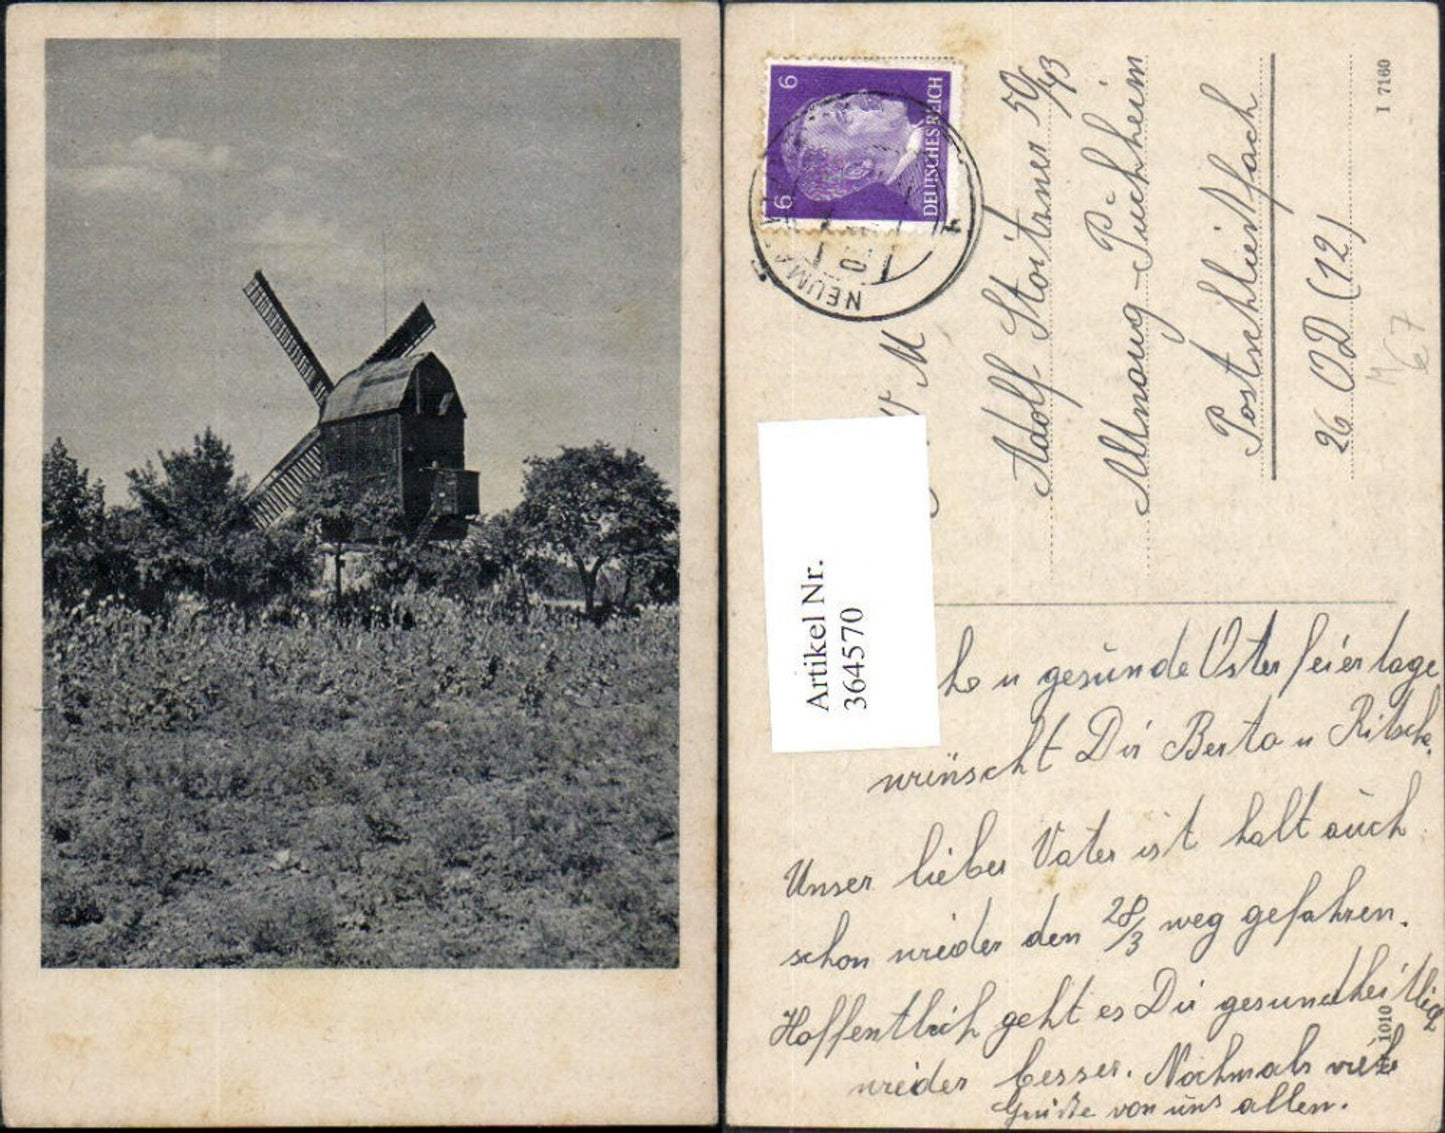 6
6
DEUTSCHES REICH
NEUM
M
Adolf Stoitzner 50/43
Attnang-Puchheim
Postschließfach
26 OD (12)
I 7160
67
Artikel Nr.
364570
he u gesunde Osterfeiertage
wünscht Dir Berta u Ritschi.
Unser lieber Vater ist halt auch
schon wieder den 28/3 weg gefahren.
Hoffentlich geht es Dir gesundheitlich
wieder besser. Nochmals viele
Grüße von uns allen.
1010